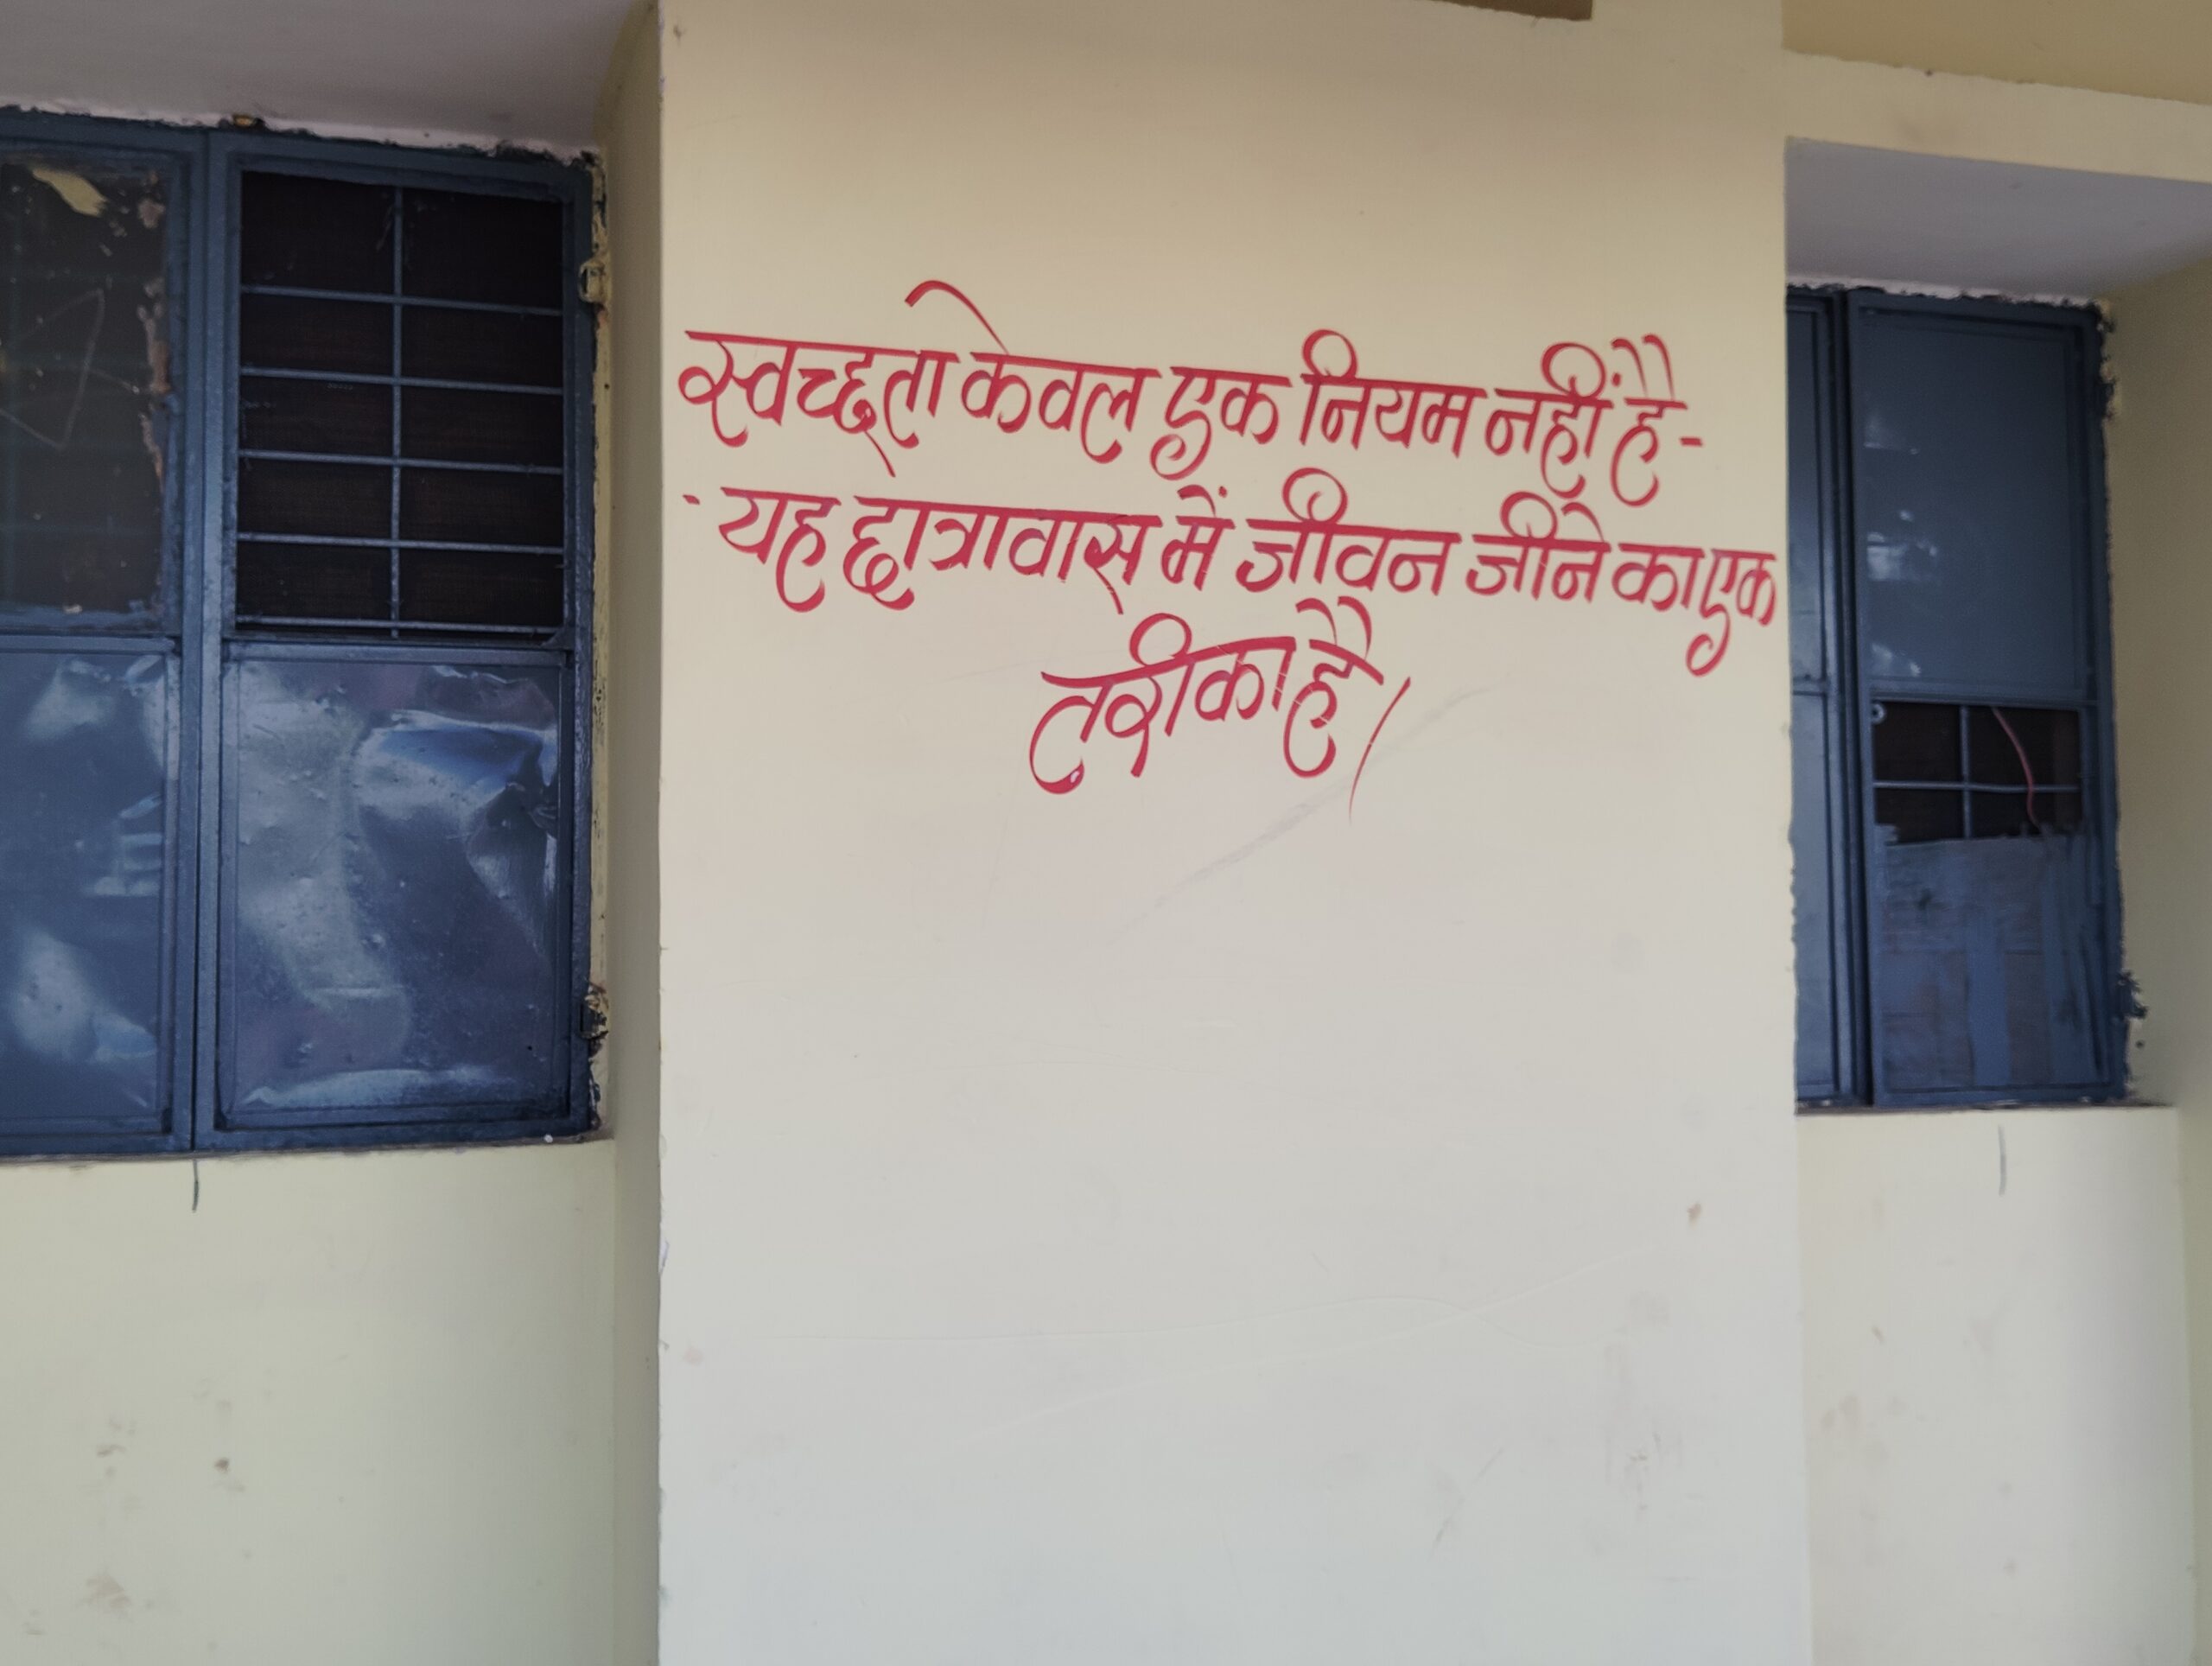 स्वच्छता केवल एक नियम नहीं है -
- यह छात्रावास में जीवन जीने का एक
तरीका है।